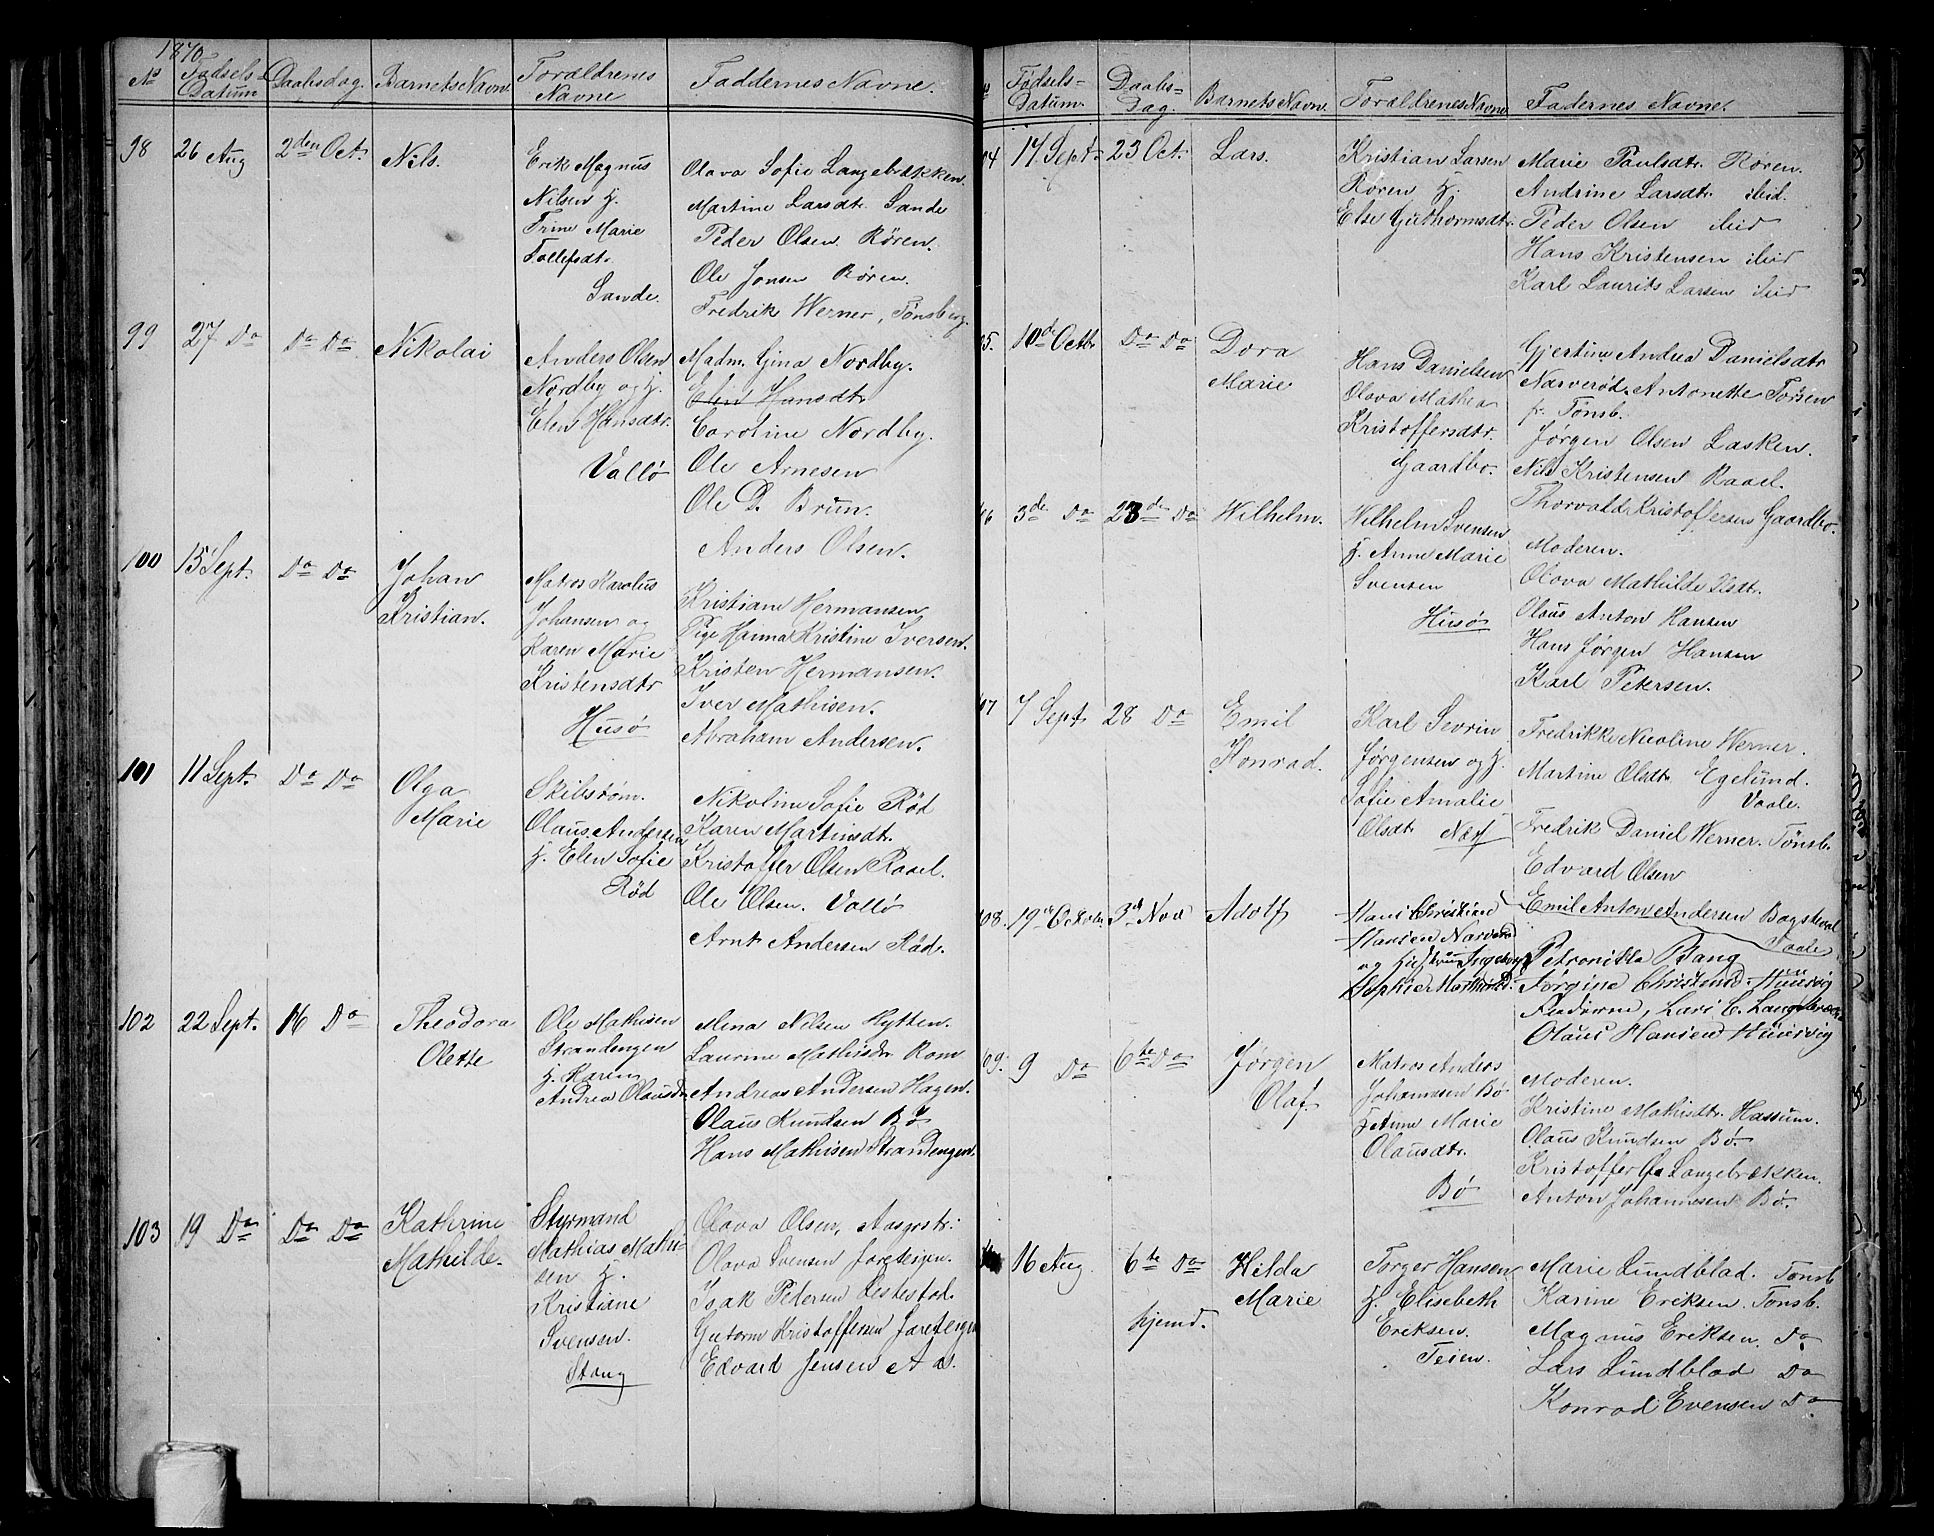 1870.
No
Fødsels-
Datum
Daabsdag.
Barnets Navn.
Forældrenes
Navne
Faddernes Navne.
98
26 Aug
2den Oct.
Nils.
Erik Magnus
Nilsen H.
Trine Marie
Tollefsdtr.
Sande.
Olava Sofie Langebrækken.
Martine Larsdt. Sande
Peder Olsen Røren.
Ole Jonsen Røren.
Fredrik Werner, Tønsberg.
99
27 Do
Do Do
Nikolai
Anders Olsen
Nordby og H.
Elen Hansdtr.
Vallø
Madm. Gina Nordby.
Elen Hansdtr
Caroline Nordby.
Ole Arnesen
Ole D. Brun.
Anders Olsen.
100
15 Sept.
Do Do
Johan
Kristian.
Matros Karolus
Johansen og
Karen Marie
Kristensdtr
Husø
Kristiane Hermansen
Pige Hanna Kristine Iversen.
Kristen Hermansen.
Iver Mathisen.
Abraham Andersen.
101
11 Sept.
Do Do
Olga
Marie
Skibstøm.
Olaus Andersen
H. Elen Sofie
Rød
Nikoline Sofie Rød
Karen Martinsdtr.
Kristoffer Olsen Raael.
Ole Olsen. Vallø
Arnt Andersen Rød.
102
22 Sept.
16 Do
Theodora
Olette
Ole Mathisen
Strandengen
H. Karen
Andrea Olausdtr
Mina Nilsen Rytten.
Laurine Mathisdtr Rom
Andreas Andersen Hagen.
Olaus Knudsen Bø
Hans Mathisen Strandengen.
103
19 Do
Do Do
Kathrine
Mathilde.
Styrmand
Mathias Mathi-
sen H.
Kristiane
Svensen.
Stang
Olava Olsen, Aasgrstr.
Olava Svensen Jareteigen.
Isak Pedersen Lestestad.
Gutorm Kristoffersen Jareteigen
Edvard Jensen Aas.
Fødsels-
Datum.
Daabs-
Dag.
Barnets Navn.
Forældrenes Navne
Fadernes Navne.
04
14 Sept.
23 Oct.
Lars.
Kristian Larsen
Røren H.
Else Guthormsdtr.
Marie Paulsdtr. Røren.
Andrine Larsdtr ibid.
Peder Olsen ibid
Hans Kristensen ibid
Karl Laurits Larsen ibid
05.
10d Octbr
Do Do
Dora
Marie
Hans Danielsen
Olava Mathea
Kristoffersdtr.
Gaardbo.
Gjertine Andrea Danielsdtr
Narverød. Antonette Torsen
fr. Tønsb.
Jørgen Olsen Lasken.
Nils Kristensen Raael.
Thorvald Kristoffersen Gaardbo.
06
3de Do
23de Do
Wilhelm.
Wilhelm Svensen
H. Anne Marie
Svensen
Husø
Moderen.
Olava Mathilde Olsdtr.
Olaus Anton Hansen
Hans Jørgen Hansen
Karl Petersen.
07
7 Sept
28 Do
Emil
Konrad.
Karl Sevrin
Jørgensen og H.
Sofie Amalie
Olsdtr Næs
Fredrikke Nicoline Werner.
Martine Olsdtr Egelund.
Vaale.
Fredrik Daniel Werner. Tønsb.
Edvard Olsen
108.
19de Octob.
3d Nov
Adolf
Hans Christian
Hansen Narverød
og Hustru Ingeborg
Sophie Mathisd.
Emil Anton Andersen Bogskeval
Vaale
Petronille Bang
Jørgine Christensd. Husvig
Faderne, Lars C. Langebræk
Olaus Hansen Husvig
09.
9 Do
6te Do
Jørgen
Olaf.
Matros Anders
Johannesen Bø
H. Anne Marie
Olausdtr.
Bø
Moderen.
Kristine Mathisdtr. Hassum.
Olaus Knudsen Bø.
Kristoffer Langebrækken.
Anton Johannesen Bø.
16 Aug.
6te Do
hjemd.
Hilda
Marie
Torger Hansen
H. Elisebeth
Eriksen.
Teien.
Marie Lundblad. Tønsb
Karine Eriksen. Tønsb.
Magnus Eriksen. Do
Lars Lundblad Do
Konrad Evensen Do